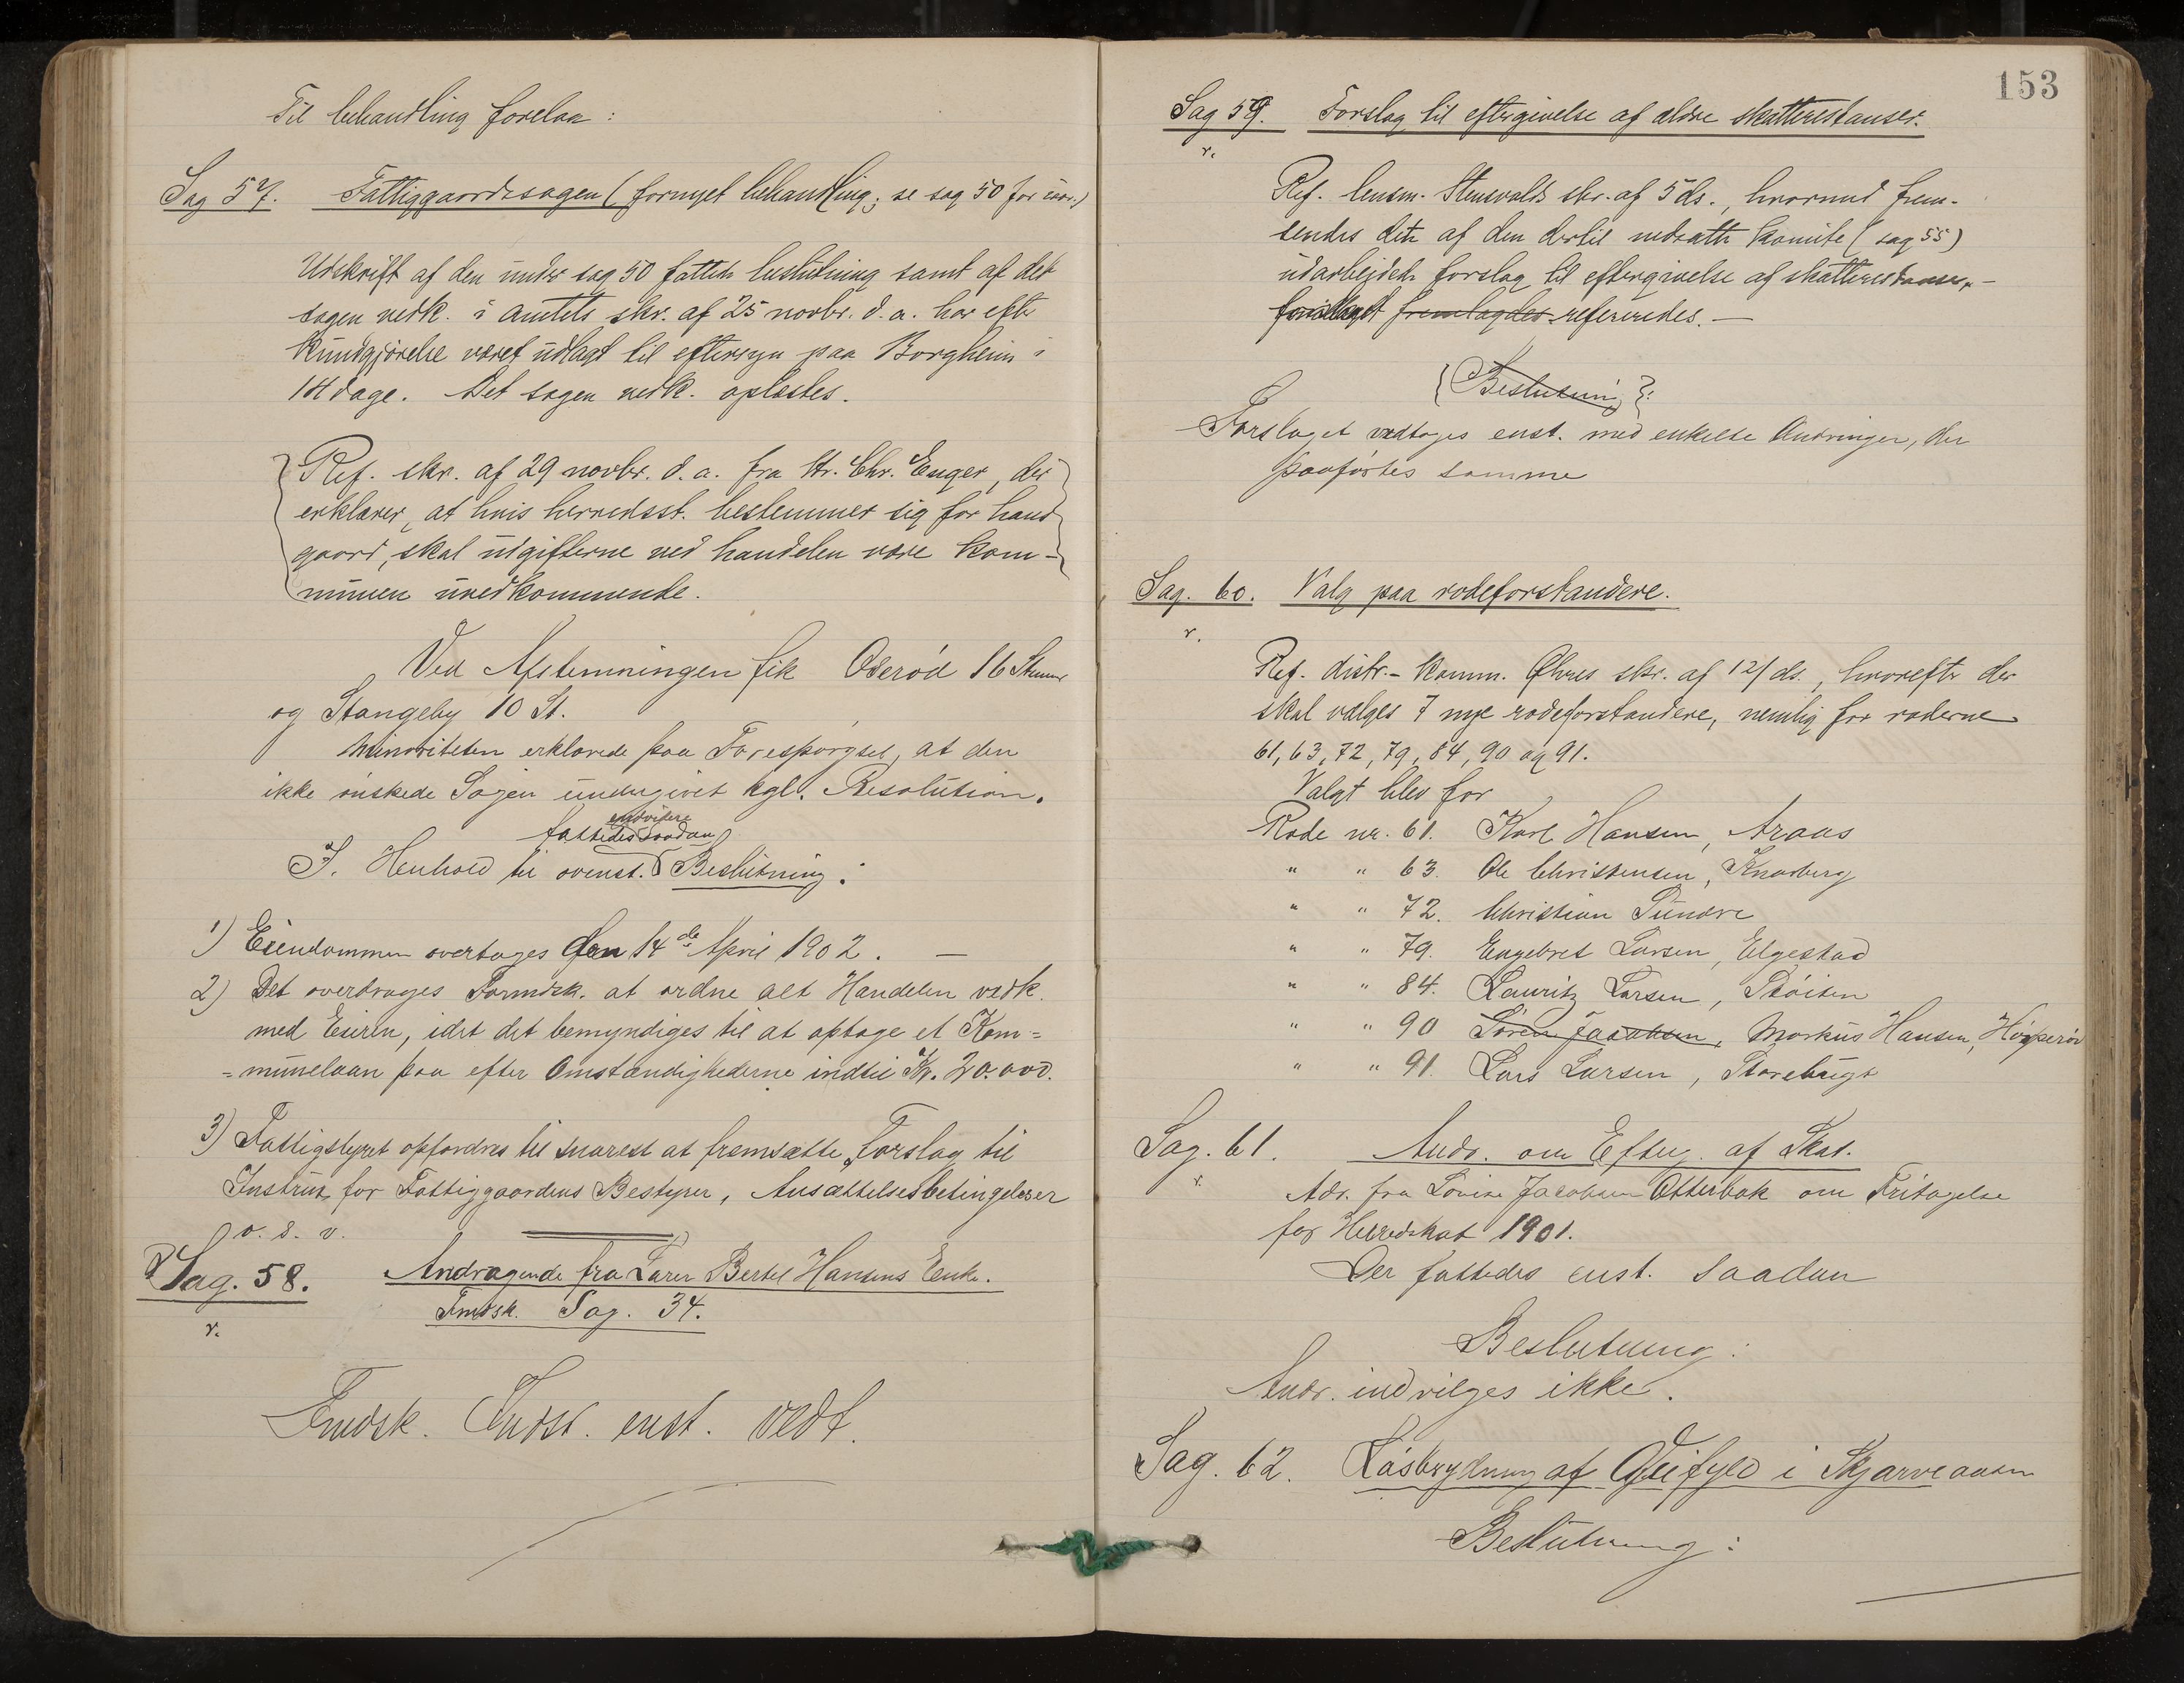 Til behandling forelaa:
Sag 57. Fattiggaardssagen (fornyet behandling; se sag 50 for iaar.)
Udskrift af den under sag 50 fattede beslutning samt af det
sagen vedk. i amtets skr. af 25 novbr. d. a. har efter
kundgjørelse været udlagt til eftersyn paa Borgheim i
14 dage. Det sagen vedk. oplæstes.
Ref. skr. af 29 novbr. d. a. fra Hr. Chr. Enger, der
erklærer, at hvis herredsst. bestemmer sig for hans
gaard, skal udgifterne ved handelen være kom-
munen uvedkommende.
Ved Afstemningen fik Oserød 16 Stemmer
og Stangeby 10 St.
Minoriteten erklærede paa Forespørgsel, at den
ikke ønskede Sagen undergivet kgl. Resolution.
endvidere
fattedes saadan
I Henhold til ovenst. Beslutning:
1) Eiendommen overtages den 14de April 1902. —
2) Det overdrages Formdsk. at ordne alt Handelen vedk.
med Eieren, idet det bemyndiges til at optage et Kom-
=munelaan paa efter Omstændighederne indtil Kr. 20.000.
3) Fattigstyret opfordres til snarest at fremsætte Forslag til
Instrux for Fattiggaardens Bestyrer, Ansættelsesbetingelser
o. s. v.
Sag. 58. Andragende fra Lærer Bertel Hansens Enke.
Fmdsk. Sag. 34.
v.
Fmdsk. Indst. enst. vedt.
153
Sag 59. Forslag til eftergivelse af ældre skatterestanser.
v.
Ref. lensm. Stensvalds skr. af 5 ds., hvormed frem-
sendes dette af den dertil nedsatte komite (sag 55)
udarbejdede forslag til eftergivelse af skatterestanser, —
forslaget fremlagdes refereredes. —
{Beslutning}:
Forslaget vedtages enst. med enkelte Ændringer, der
paaførtes samme
Sag. 60. Valg paa rodeforstandere.
v.
Ref. distr.-komm. Øhres skr. af 12/ ds., hvorefter der
skal vælges 7 nye rodeforstandere, nemlig for roderne
61, 63, 72, 79, 84, 90 og 91.
Valgt blev for
Rode nr. 61. Karl Hansen, Araas
" " 63. Ole Christensen, Knarberg
" " 72. Christian Sundre
" " 79. Engebret Larsen, Elgestad
" " 84. Lauritz Larsen,
" " 90 Søren Jacobsen, Markus Hansen,
" " 91. Lars Larsen,
Sag. 61. Andr. om Efterg. af Skat.
v.
Adr. fra Lovise Jacobsen Otterbæk om Fritagelse
for Herredskat 1901.
Der fattedes enst. saadan
Beslutning:
Andr. indvilges ikke.
Sag. 62. Løsbrydning af Veifyld i Skjærveaasen
Beslutning: